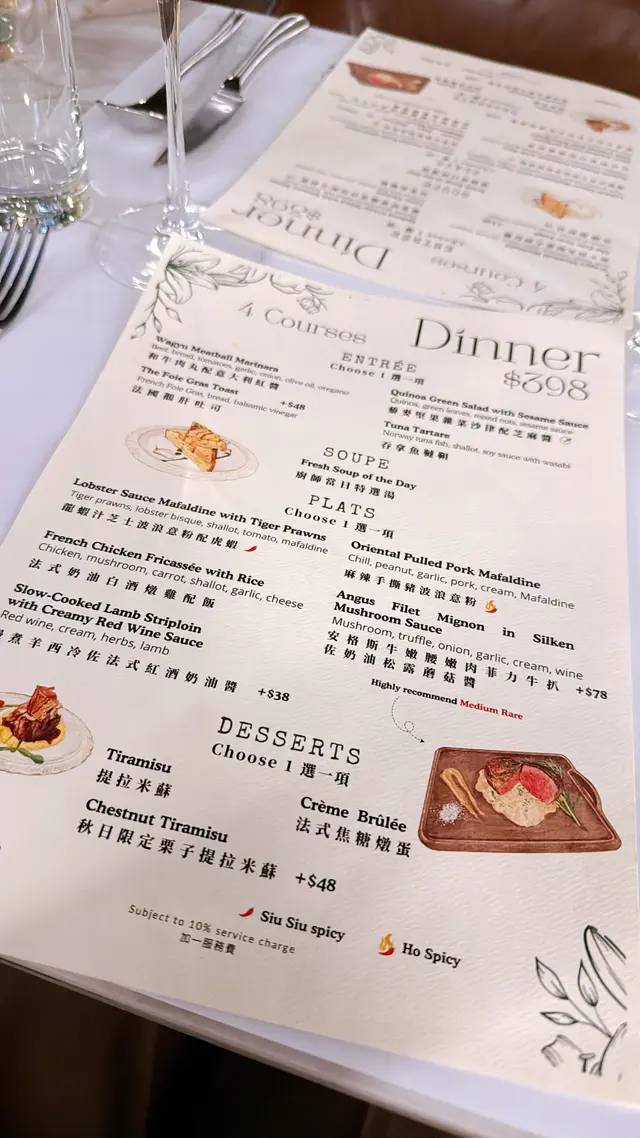 4 Courses
Dinner
$398
ENTRÉE
Choose 1 選一項
Wagyu Meatball Marinara
Beef, bread, tomatoes, garlic, onion, olive oil, oregano
和牛肉丸配意大利紅醬
The Foie Gras Toast +$48
French Foie Gras, bread, balsamic vinegar
法國鵝肝吐司
Quinoa Green Salad with Sesame Sauce
Quinoa, green leaves, mixed nuts, sesame sauce
藜麥堅果雜菜沙律配芝麻醬
Tuna Tartare
Norway tuna fish, shallot, soy sauce with wasabi
吞拿魚韃靼
SOUPE
Fresh Soup of the Day
廚師當日特選湯
PLATS
Choose 1 選一項
Lobster Sauce Mafaldine with Tiger Prawns
Tiger prawns, lobster bisque, shallot, tomato, mafaldine
龍蝦汁芝士波浪意粉配虎蝦
French Chicken Fricassée with Rice
Chicken, mushroom, carrot, shallot, garlic, cheese
法式奶油白酒燉雞配飯
Slow-Cooked Lamb Striploin
with Creamy Red Wine Sauce
Red wine, cream, herbs, lamb
煮羊西冷佐法式紅酒奶油醬 +$38
Oriental Pulled Pork Mafaldine
Chill, peanut, garlic, pork, cream, Mafaldine
麻辣手撕豬波浪意粉
Angus Filet Mignon in Silken
Mushroom Sauce
Mushroom, truffle, onion, garlic, cream, wine
安格斯牛嫩腰嫩肉菲力牛扒
佐奶油松露蘑菇醬 +$78
Highly recommend Medium Rare
DESSERTS
Choose 1 選一項
Tiramisu
提拉米蘇
Chestnut Tiramisu
秋日限定栗子提拉米蘇 +$48
Crème Brûlée
法式焦糖燉蛋
Siu Siu spicy
Ho Spicy
Subject to 10% service charge
加一服務費
Dinner
$398
4 Courses